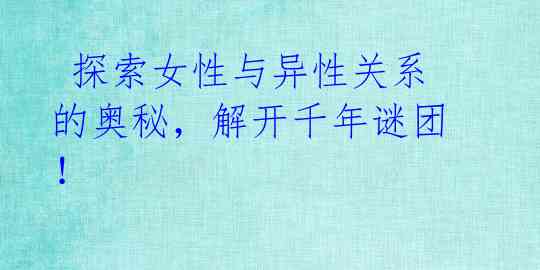 探索女性与异性关系
的奥秘，解开千年谜团
！